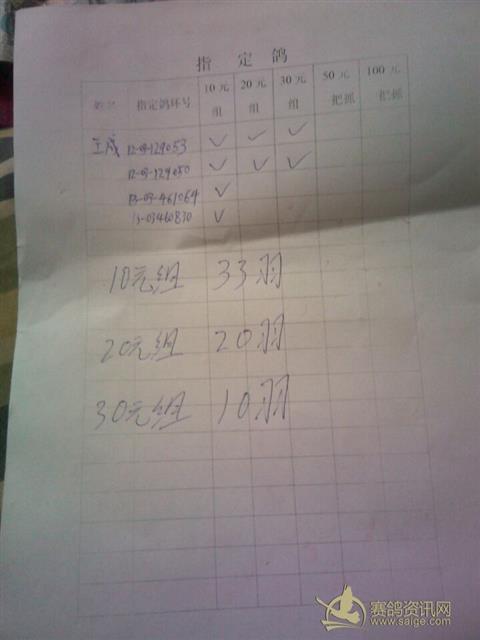 指定鸽
姓名 指定鸽环号 10元组 20元组 30元组 50元把抓 100元把抓
王成 12-03-129053 ✓ ✓ ✓
12-03-129050 ✓ ✓ ✓
13-03-461064 ✓
13-03460830 ✓
10元组 33羽
20元组 20羽
30元组 10羽
赛鸽资讯网
www.saige.com